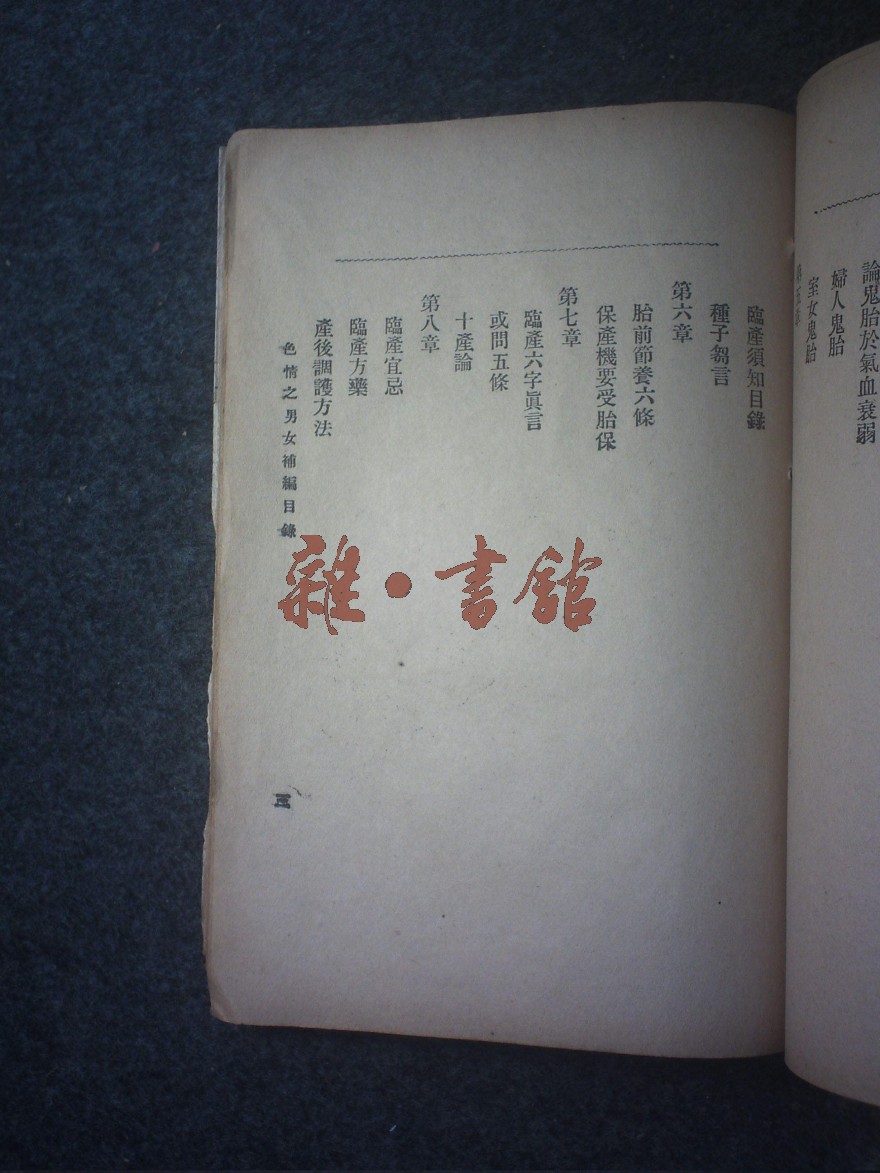 論鬼胎於氣血衰弱
婦人鬼胎
室女鬼胎
臨產須知目錄
種子芻言
第六章
胎前節養六條
保產機要受胎保
第七章
臨產六字眞言
或問五條
十產論
第八章
臨產宜忌
臨產方藥
產後調護方法
色情之男女補編目錄
三
雜·書館